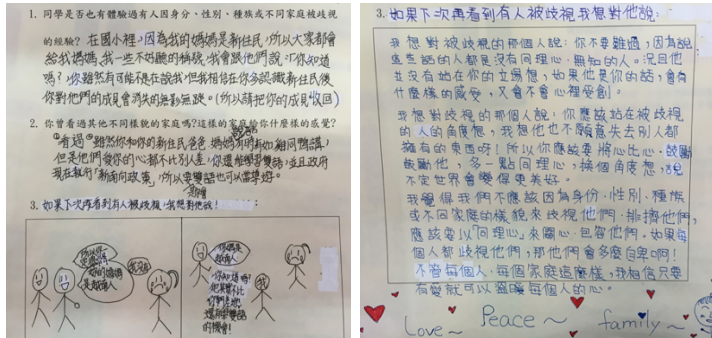 1. 同學是否也有體驗過有人因身分、性別、種族或不同家庭被歧視
的經驗？在國小裡，因為我的媽媽是新住民，所以大家都會
給我媽媽、我一些不好聽的稱號，我會跟他們說「你知道
嗎？，你雖然有可能現在說我，但我相信在你多認識新住民後
你對他們的成見會消失的無影無蹤。（所以請把你的成見收回）
2. 你曾看過其他不同樣貌的家庭嗎？這樣的家庭給你什麼樣的感覺？
看過，雖然你和你的新住民爸爸媽媽說話有時有如雞同鴨講，
但是他們愛你的心都不比別人差，你還能學習雙語，並且政府
現在執行「新南向政策」所以會雙語也可以當
3. 如果下次再看到有人被歧視，我想對他說：
你媽是
越南人
你知道嗎？
我
雙語
的機會！
3. 如果下次再看到有人被歧視我想對他說：
我想對被歧視的那個人說：你不要難過，因為說
這些話的人都是沒有同理心、無知的人。況且他
並沒有站在你的立場想，如果他是你的話，會有
什麼樣的感受，又會不會心裡受創。
我想對歧視的那個人說：你應該站在被歧視
的人的角度想，我想他也不願意失去別人都
擁有的東西呀！所以你應該要將心比心，鼓勵
鼓勵他，多一點同理心，換個角度想，說
不定世界會變得更美好。
我覺得我們不應該因為身份、性別、種族
或不同家庭的樣貌來歧視他們、排擠他們，
應該要以「同理心」來關心、包容他們。如果每
個人都歧視他們，那他們會多麼自卑啊！
不管每個人、每個家庭這麼樣，我相信只要
有愛就可以溫暖每個人的心。
Love~ Peace~ family~